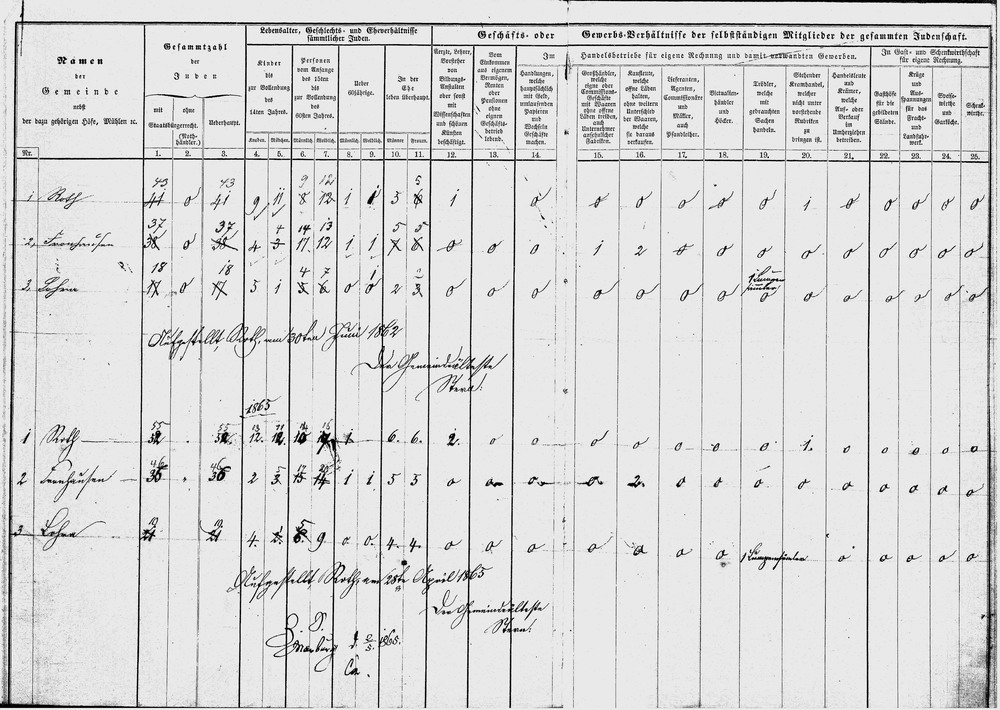 Namen
der
Gemeinde
nebst
der dazu gehörigen Höfe, Mühlen ꝛc.
Nr.
Gesammtzahl
der
Juden
mit ohne
Staatsbürgerrecht.
(Nothhändler.)
Ueberhaupt.
Lebensalter, Geschlechts- und Eheverhältnisse
sämmtlicher Juden.
Kinder
bis
zur Vollendung
des
14ten Jahres.
Personen
vom Anfange
des 15ten
bis
zur Vollendung
des
60sten Jahres.
Ueber
60jährige.
In der
Ehe
leben überhaupt.
Knaben. Mädchen. Männlich. Weiblich. Männlich. Weiblich. Männer Frauen.
Geschäfts- oder Gewerbs-Verhältnisse der selbstständigen Mitglieder der gesammten Judenschaft.
Aerzte, Lehrer,
Vorsteher
von
Bildungs-
Anstalten
oder sonst
mit
Wissenschaften
und schönen
Künsten
beschäftigt.
Vom
Einkommen
aus eigenem
Vermögen,
Renten
oder
Pensionen
ohne
eignen
Geschäfts-
betrieb
lebend.
Im
Handlungen,
welche
hauptsächlich
mit Geld,
umlaufenden
Papieren
und
Wechseln
Geschäfte
machen.
Handelsbetriebe für eigene Rechnung und damit verwandten Gewerben.
Großhändler,
welche
eigne oder
Commissions-
Geschäfte
mit Waaren
ohne offene
Läden treiben,
auch
Unternehmer
ansehnlicher
Fabriken.
Kaufleute,
welche
offne Läden
halten,
ohne weitern
Unterschied
der Waaren,
welche
sie daraus
verkaufen.
Lieferanten,
Agenten,
Commissionäre
und
Mäkler,
auch
Pfandleiher.
Victualien-
händler
und
Höcker.
Trödler,
welche
mit
gebrauchten
Sachen
handeln.
Stehender
Kramhandel,
welcher
nicht unter
vorstehende
Rubriken
zu
bringen ist.
Handelsleute
und
Krämer,
welche
Aus- oder
Verkauf
im
Umherziehen
betreiben.
In Gast- und Schenkwirthschaft
für eigene Rechnung.
Gasthöfe
für die
gebildeten
Stände.
Krüge
und
Aus-
spannungen
für das
Fracht-
und
Landfuhr-
werk.
Speise-
wirthe
und
Garköche.
Schenk-
wirthe.
1. 2. 3. 4. 5. 6. 7. 8. 9. 10. 11. 12. 13. 14. 15. 16. 17. 18. 19. 20. 21. 22. 23. 24. 25.
43 43 9 12 5
1 Roth 41 0 41 9 11 8 12 1 1 5 6 1 0 0 0 0 0 0 1 0 0 0 0 0
37 37 4 14 13 5 5
2, Fronhausen 38 0 38 4 3 17 12 1 1 7 6 0 0 0 1 2 0 0 0 0 0 0 0 0 0
18 18 4 7 1
3. Lohra 17 0 17 5 1 5 6 0 0 2 3 0 0 0 0 0 0 0 0 0 0 0 0 0
Aufgestellt, Roth, am 30ten Juni 1862
Der Gemeindeälteste
Stern.
1865
1 Roth 12. 12. 6. 6. 2. 0 0 0 0 0 0 0 1. 0 0 0 0 0
2 Fronhausen 2 3. 15 14 1 1 5 5 0 0 0 0 2. 0 0 0 0 0 0 0 0 0
3 Lohra 21 21 4. 2. 6. 9. 0 0 4. 4. 0 0 0 0 0 0 0 1 Lumpensammler 0 0 0 0 0
Aufgestellt, Roth, am 28te April 1865
Der Gemeindeälteste
Stern.
Marburg 1865.